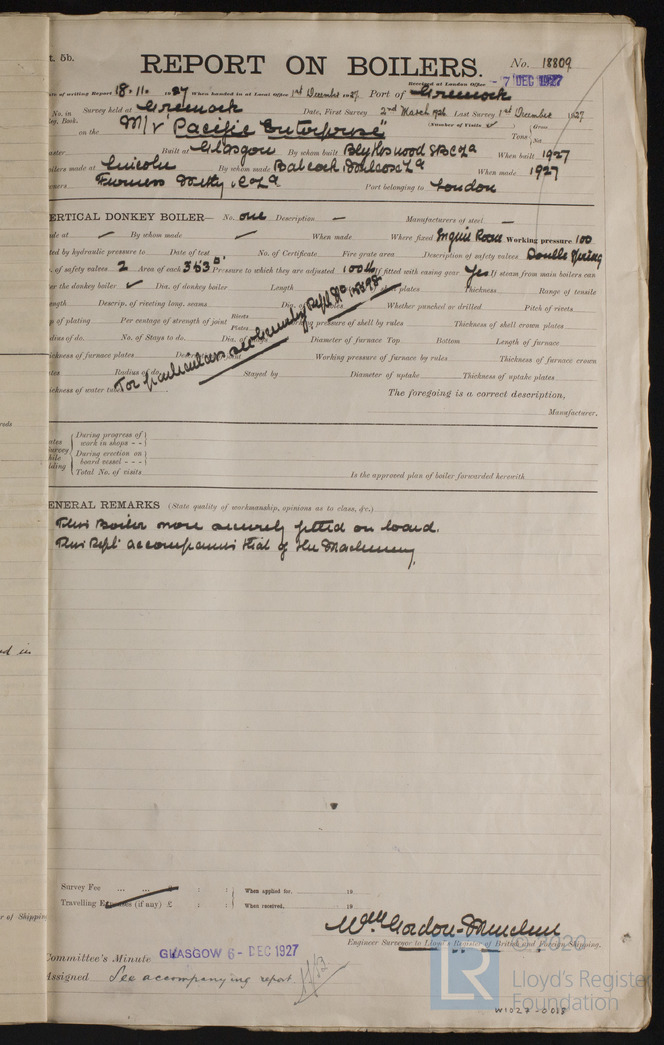 t. 5b.
REPORT ON BOILERS.
No. 18809
Received at London Office
7 DEC 1927
te of writing Report 18.11. 1927 When handed in at Local Office 1st December 1927 Port of Greenock
No. in Survey held at Greenock Date, First Survey 2nd March 1926 Last Survey 1st December 1927
Reg. Book. (Number of Visits ✓)
on the M/V "Pacific Enterprise" Tons { Gross Net
aster Built at Glasgow By whom built Blythswood SBCo Ld When built 1927
oilers made at Lincoln By whom made Babcock Wilcox Ld When made 1927
wners Furness Withy & Co Ld Port belonging to London
ERTICAL DONKEY BOILER— No. one Description — Manufacturers of steel —
de at By whom made When made Where fixed Engine Room Working pressure 100
ted by hydraulic pressure to Date of test No. of Certificate Fire grate area Description of safety valves Double Spring
. of safety valves 2 Area of each 3.53□" Pressure to which they are adjusted 100 lb If fitted with easing gear Yes If steam from main boilers can
er the donkey boiler ✓ Dia. of donkey boiler Length plates Thickness Range of tensile
ngth Descrip. of riveting long. seams Dia. Whether punched or drilled Pitch of rivets
p of plating Per centage of strength of joint Rivets Plates pressure of shell by rules Thickness of shell crown plates
dius of do. No. of Stays to do. Dia. of Diameter of furnace Top Bottom Length of furnace
ickness of furnace plates Working pressure of furnace by rules Thickness of furnace crown
ates Radius of do. Stayed by Diameter of uptake Thickness of uptake plates
ickness of water tu
For particulars see Grimsby Rept No
The foregoing is a correct description,
Manufacturer.
ates Survey hile lding
During progress of work in shops - -
During erection on board vessel - - -
Total No. of visits
Is the approved plan of boiler forwarded herewith
ENERAL REMARKS (State quality of workmanship, opinions as to class, &c.)
This Boiler now securely fitted on board.
This Rept accompanies that of the Machinery.
Survey Fee ... ... £ : : When applied for, 19
Travelling Expenses (if any) £ : : When received, 19
Wm Gordon-
Engineer Surveyor to Lloyd's Register of British and Foreign Shipping.
Committee's Minute GLASGOW 6 - DEC 1927
Assigned See accompanying report.
ed in
r of Shipping
© 2020
LR
Lloyd's Register
Foundation
W1027-0018